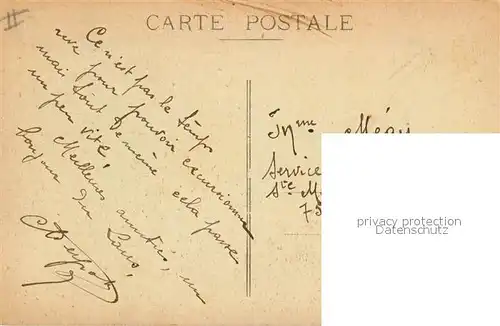 II
CARTE POSTALE
Ce n'est pas le temps
rêvé pour pouvoir excursionner
mais tout de même cela passe
un peu vite.
Meilleures amitiés, un
bonjour du
Mme
Service
Ste M
75
privacy protection